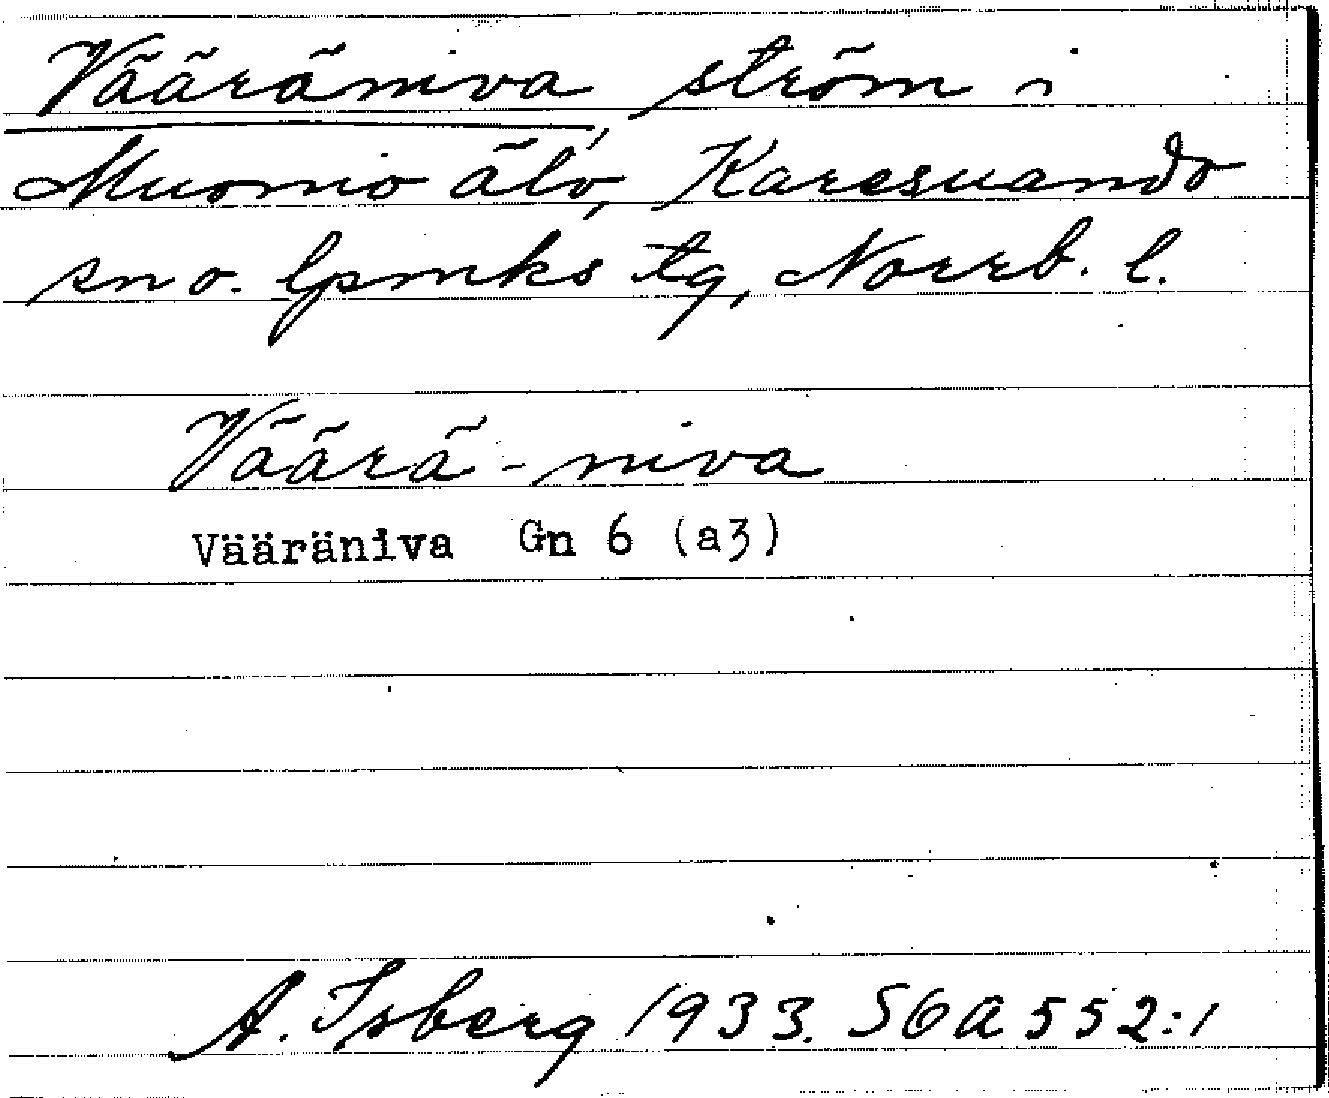 Vääräniva, ström i
Muonio älv, Karesuando
sn o. lpmks tg, Norrb. l.
Väärä-niva
Vääräniva Gn 6 (a3)
A. Isberg 1933. SOA 552:1